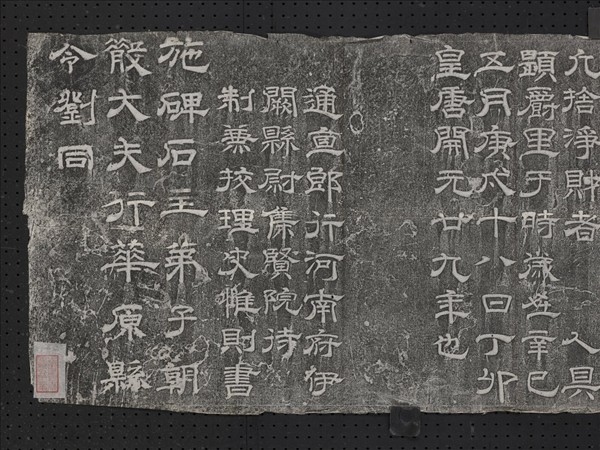 允捨淨財者 人具
顯爵里于時歲在辛巳
五月庚戌十八日丁卯
皇唐開元廿九年也
通直郎行河南府伊
闕縣尉集賢院待
制兼挍理史惟則書
施碑石主弟子朝
散大夫行華原縣
令劉同